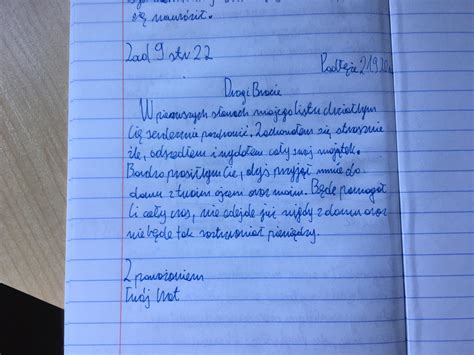 się nawrócił.
Zad 9 str 22
Podłęże 21.
Drogi Bracie
W pierwszych słowach mojego listu chciałbym
Cię serdecznie pozdrowić. Zachowałem się strasznie
źle, odszedłem i wydałem cały swój majątek.
Bardzo prosiłbym Cię, abyś przyjął mnie do
domu z twoim ojcem oraz moim. Będę pomagał
Ci cały czas, nie odejdę już nigdy z domu oraz
nie będę tak roztrwaniał pieniędzy.
Z poważaniem
Twój brat